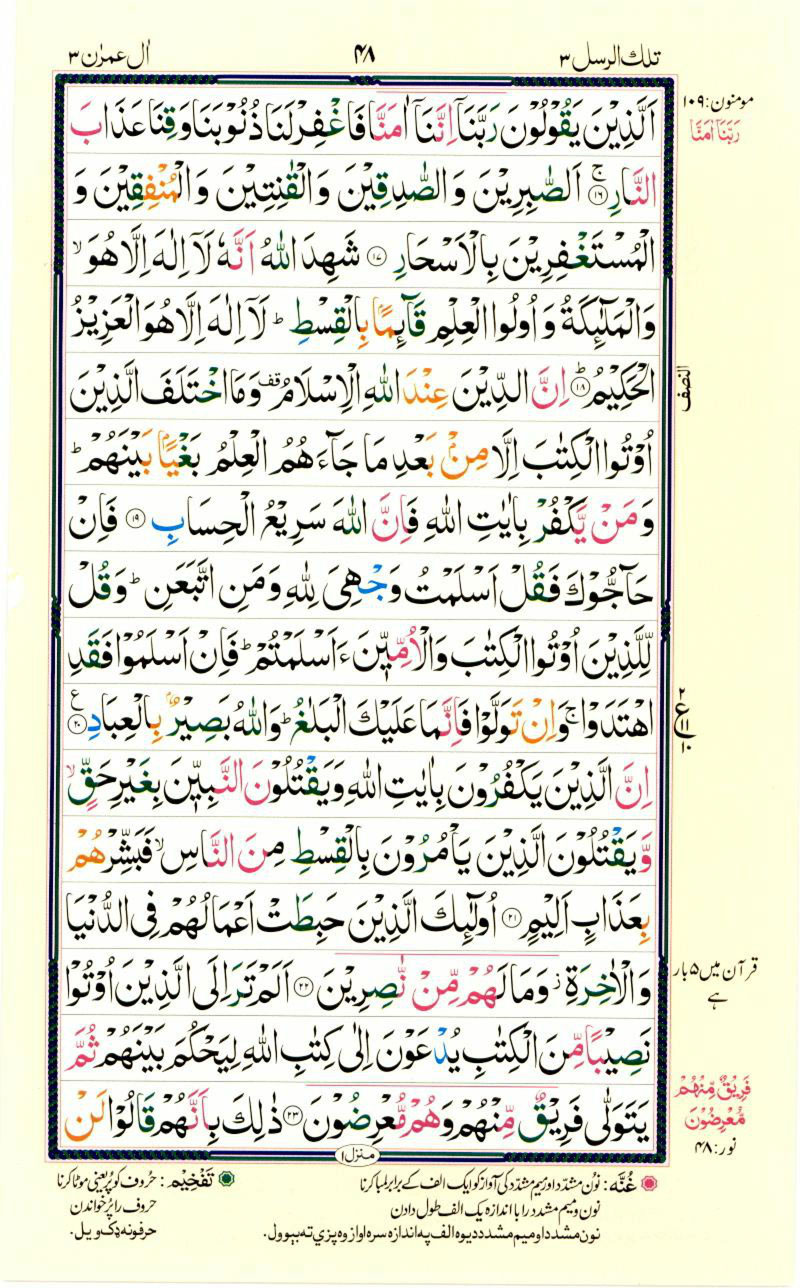 تلك الرسل ٣
٤٨
اٰل عمرٰن ٣
مومنون: ۱۰۹
رَبَّنَاۤ اٰمَنَّا
اَلَّذِیْنَ یَقُوْلُوْنَ رَبَّنَاۤ اِنَّنَاۤ اٰمَنَّا فَاغْفِرْ لَنَا ذُنُوْبَنَا وَقِنَا عَذَابَ
النَّارِ ۚ﴿۱۶﴾ اَلصّٰبِرِیْنَ وَالصّٰدِقِیْنَ وَالْقٰنِتِیْنَ وَالْمُنْفِقِیْنَ وَ
الْمُسْتَغْفِرِیْنَ بِالْاَسْحَارِ ﴿۱۷﴾ شَهِدَ اللّٰهُ اَنَّهٗ لَاۤ اِلٰهَ اِلَّا هُوَ ۙ
وَالْمَلٰٓئِكَةُ وَاُولُوا الْعِلْمِ قَآئِمًۢا بِالْقِسْطِ ؕ لَاۤ اِلٰهَ اِلَّا هُوَ الْعَزِیْزُ
الْحَكِیْمُ ؕ﴿۱۸﴾ اِنَّ الدِّیْنَ عِنْدَ اللّٰهِ الْاِسْلَامُ قف وَمَا اخْتَلَفَ الَّذِیْنَ
النصف
اُوْتُوا الْكِتٰبَ اِلَّا مِنْۢ بَعْدِ مَا جَآءَهُمُ الْعِلْمُ بَغْیًۢا بَیْنَهُمْ ؕ
وَمَنْ یَّكْفُرْ بِاٰیٰتِ اللّٰهِ فَاِنَّ اللّٰهَ سَرِیْعُ الْحِسَابِ ﴿۱۹﴾ فَاِنْ
حَآجُّوْكَ فَقُلْ اَسْلَمْتُ وَجْهِیَ لِلّٰهِ وَمَنِ اتَّبَعَنِ ؕ وَقُلْ
لِّلَّذِیْنَ اُوْتُوا الْكِتٰبَ وَالْاُمِّیّٖنَ ءَاَسْلَمْتُمْ ؕ فَاِنْ اَسْلَمُوْا فَقَدِ
اهْتَدَوْا ۚ وَاِنْ تَوَلَّوْا فَاِنَّمَا عَلَیْكَ الْبَلٰغُ ؕ وَاللّٰهُ بَصِیْرٌۢ بِالْعِبَادِ ﴿۲۰﴾ ع
۲
ع ۱۱
۱۰
اِنَّ الَّذِیْنَ یَكْفُرُوْنَ بِاٰیٰتِ اللّٰهِ وَیَقْتُلُوْنَ النَّبِیّٖنَ بِغَیْرِ حَقٍّ ۙ
وَّیَقْتُلُوْنَ الَّذِیْنَ یَاْمُرُوْنَ بِالْقِسْطِ مِنَ النَّاسِ ۙ فَبَشِّرْهُمْ
بِعَذَابٍ اَلِیْمٍ ﴿۲۱﴾ اُولٰٓئِكَ الَّذِیْنَ حَبِطَتْ اَعْمَالُهُمْ فِی الدُّنْیَا
وَالْاٰخِرَةِ ز وَمَا لَهُمْ مِّنْ نّٰصِرِیْنَ ﴿۲۲﴾ اَلَمْ تَرَ اِلَی الَّذِیْنَ اُوْتُوْا
قرآن میں ۵ بار
ہے
نَصِیْبًا مِّنَ الْكِتٰبِ یُدْعَوْنَ اِلٰی كِتٰبِ اللّٰهِ لِیَحْكُمَ بَیْنَهُمْ ثُمَّ
یَتَوَلّٰی فَرِیْقٌ مِّنْهُمْ وَهُمْ مُّعْرِضُوْنَ ﴿۲۳﴾ ذٰلِكَ بِاَنَّهُمْ قَالُوْا لَنْ
فَرِیْقٌ مِّنْهُمْ
مُّعْرِضُوْنَ
نور: ۴۸
منزل ۱
غُنَّه: نون مشدّد اور میم مشدد کی آواز کو ایک الف کے برابر لمبا کرنا
نون و میم مشدد را با اندازه یک الف طول دادن
نون مشدد او میم مشدد د یوه الف په اندازه سره اواز وه پزې ته بېوول.
تَفْخِیْم: حروف کو پُر یعنی موٹا کرنا
حروف را پُر خواندن
حرفونه ډک ویل.